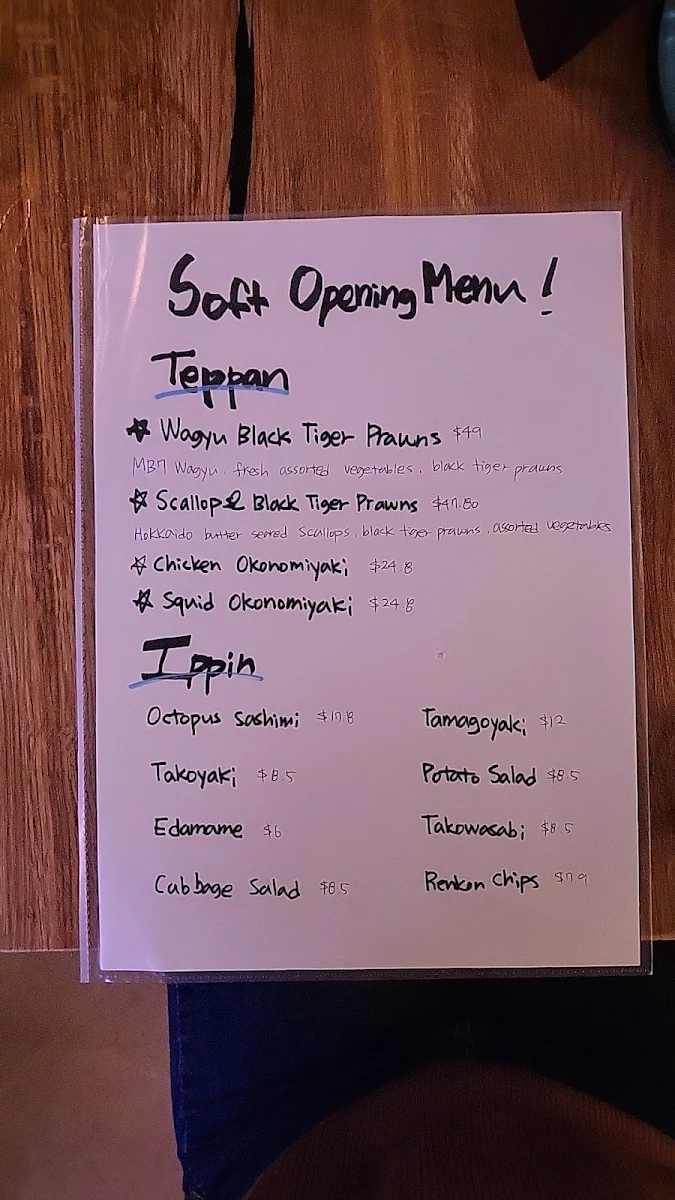 Soft Opening Menu!
Teppan
Wagyu Black Tiger Prawns $49
MB7 Wagyu, fresh assorted vegetables, black tiger prawns
Scallop & Black Tiger Prawns $47.80
Hokkaido butter seared scallops, black tiger prawns, assorted vegetables
Chicken Okonomiyaki $24.8
Squid Okonomiyaki $24.8
Ippin
Octopus Sashimi $17.8 Tamagoyaki $12
Takoyaki $8.5 Potato Salad $8.5
Edamame $6 Takowasabi $8.5
Cabbage Salad $8.5 Renkon Chips $7.9